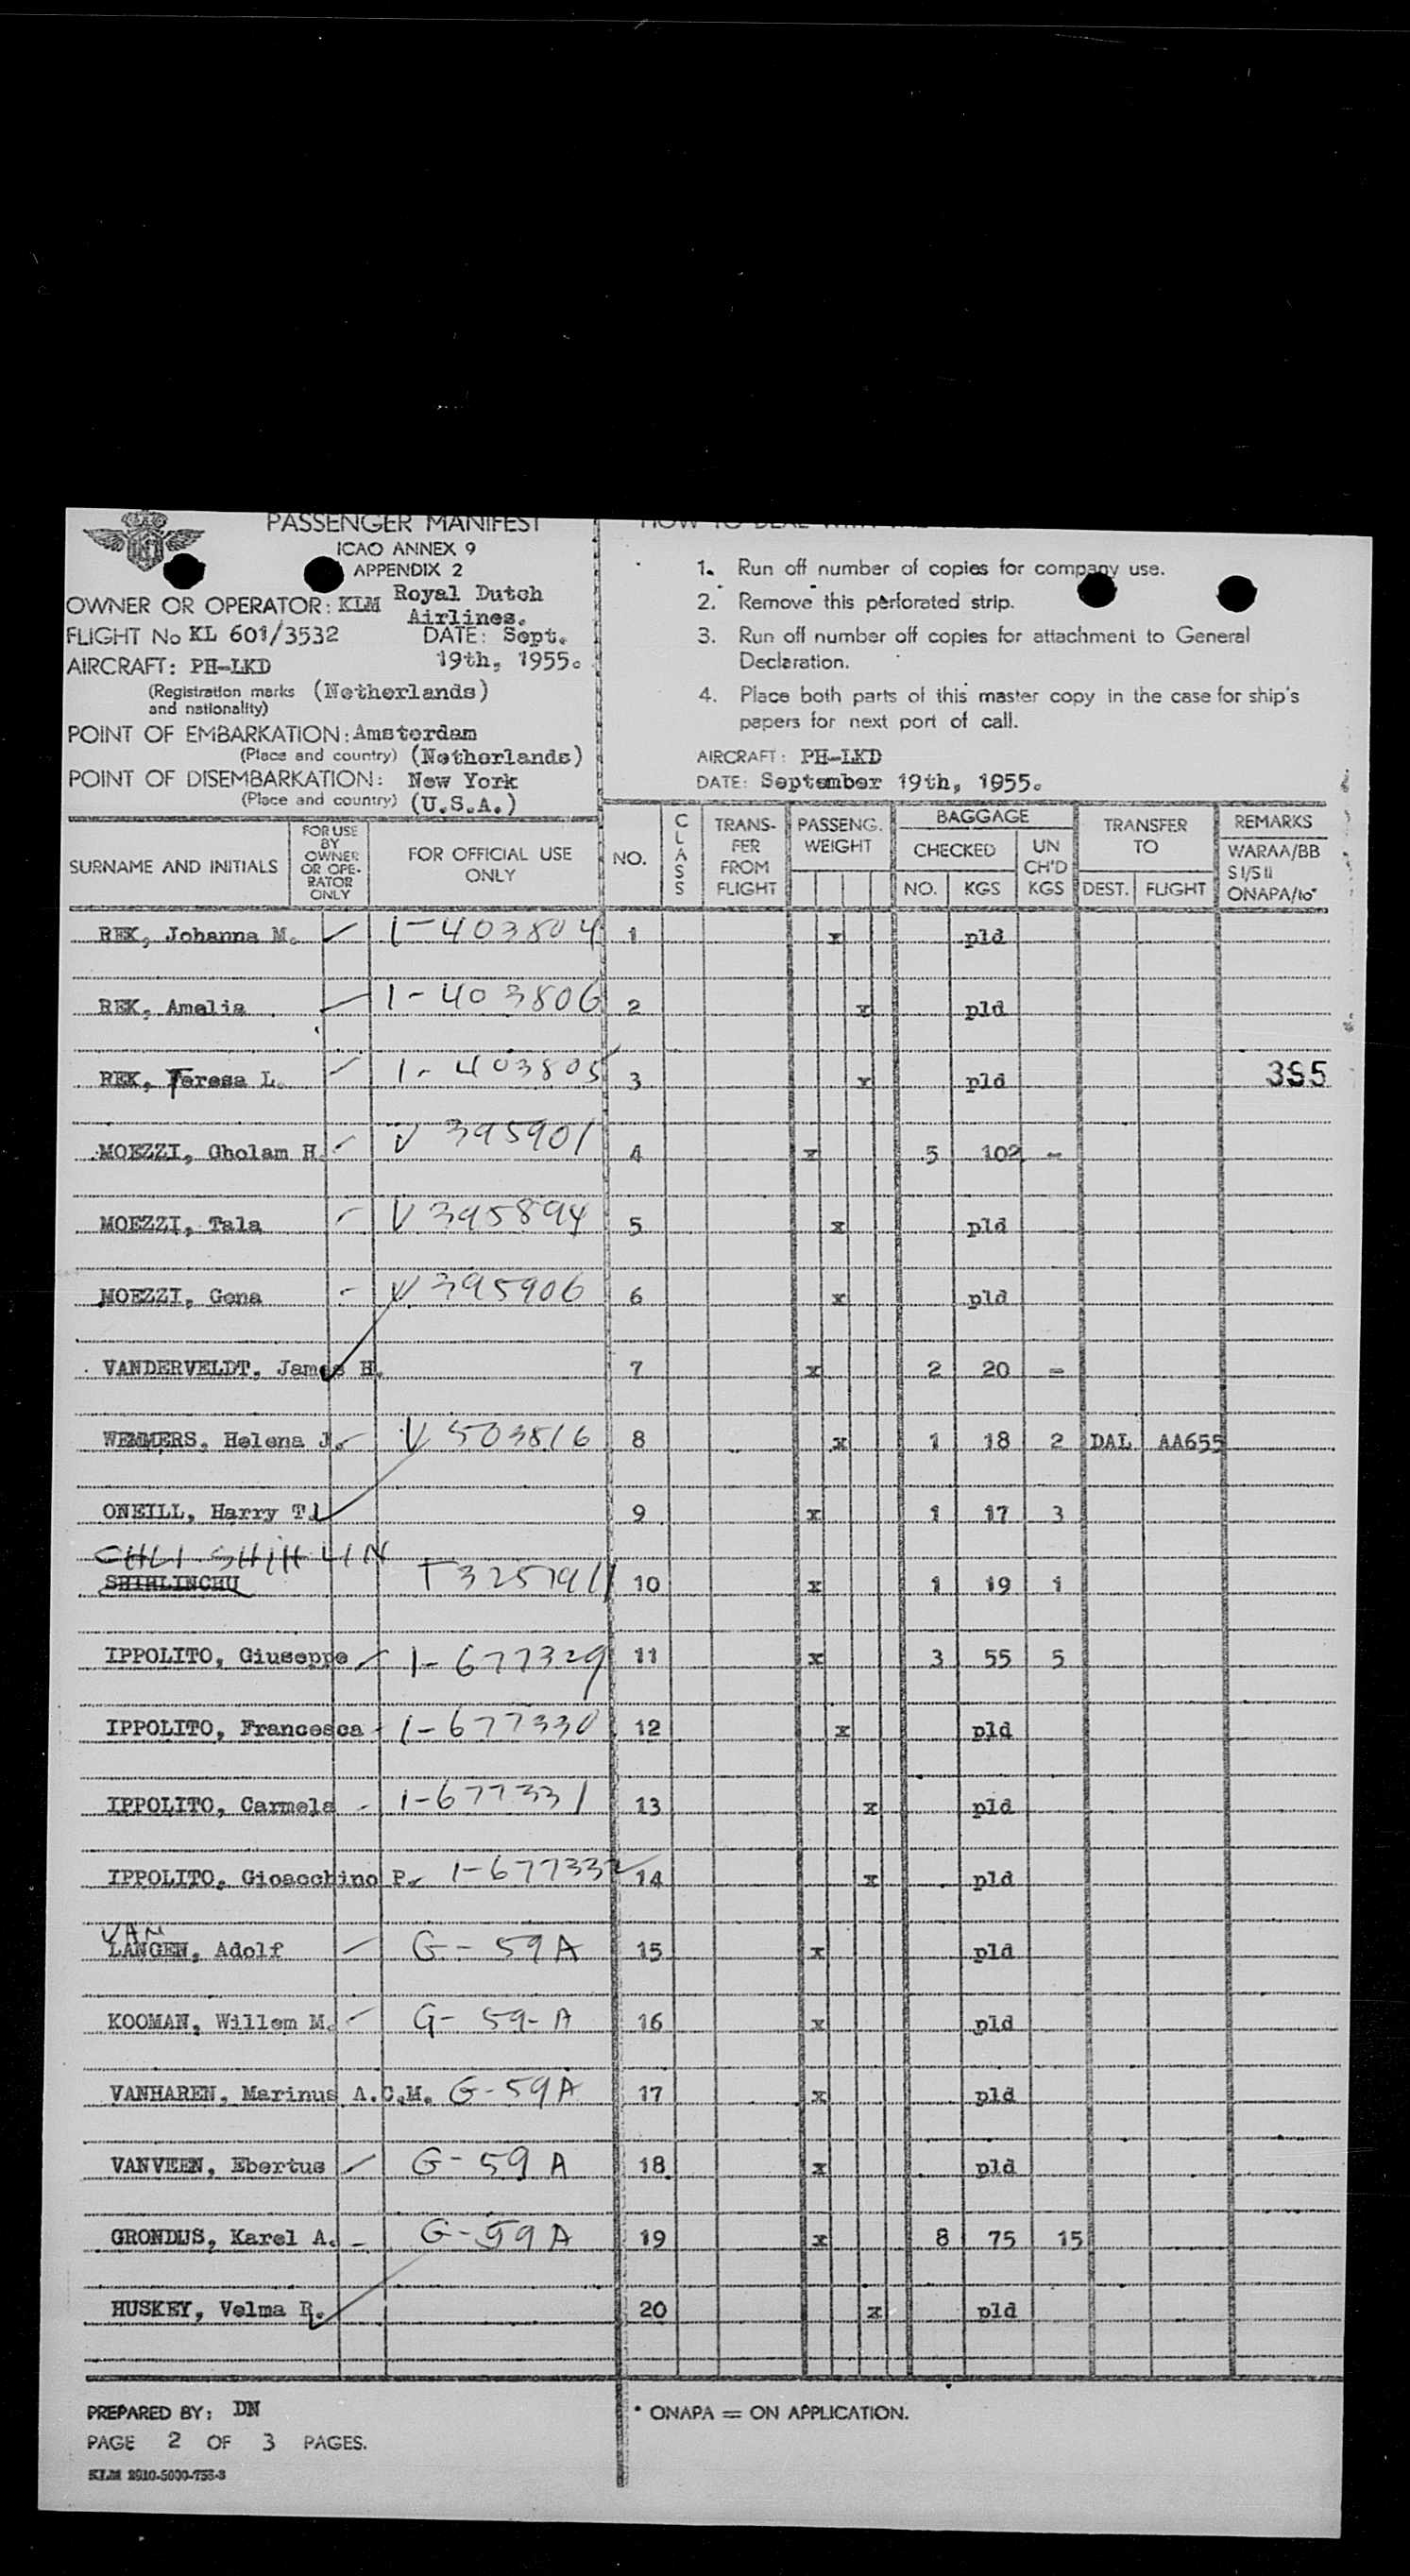 PASSENGER MANIFEST
ICAO ANNEX 9
APPENDIX 2
OWNER OR OPERATOR: KLM Royal Dutch Airlines.
FLIGHT No KL 601/3532 DATE: Sept. 19th, 1955.
AIRCRAFT: PH-LKD
(Registration marks and nationality) (Netherlands)
POINT OF EMBARKATION: Amsterdam
(Place and country) (Netherlands)
POINT OF DISEMBARKATION: New York
(Place and country) (U.S.A.)
1. Run off number of copies for company use.
2. Remove this perforated strip.
3. Run off number off copies for attachment to General
Declaration.
4. Place both parts of this master copy in the case for ship's
papers for next port of call.
AIRCRAFT: PH-LKD
DATE: September 19th, 1955.
SURNAME AND INITIALS FOR USE BY OWNER OR OPE-RATOR ONLY FOR OFFICIAL USE ONLY NO. CLASS TRANS-FER FROM FLIGHT PASSENG. WEIGHT BAGGAGE CHECKED NO. KGS UN CH'D KGS TRANSFER TO DEST. FLIGHT REMARKS WARAA/BB SI/SII ONAPA/10*
REK, Johanna M. 1-403804 1 x pld
REK, Amelia 1-403806 2 x pld
REK, Teresa L. 1-403805 3 x pld 395
MOEZZI, Gholam H. V 395901 4 x 5 102 -
MOEZZI, Tala V 395894 5 x pld
MOEZZI, Gona V 395906 6 x pld
VANDERVELDT, James H. 7 x 2 20 -
WEMMERS, Helena J. V 503816 8 x 1 18 2 DAL AA655
ONEILL, Harry T. 9 x 1 17 3
SHIH LIN
SHIHLINCHU 10 x 1 19 1
IPPOLITO, Giuseppe 1-677329 11 x 3 55 5
IPPOLITO, Francesca 1-677330 12 x pld
IPPOLITO, Carmela 1-677331 13 x pld
IPPOLITO, Gioacchino P. 1-677332 14 x pld
VAN
LANGEN, Adolf G-59A 15 x pld
KOOMAN, Willem M. G-59-A 16 x pld
VANHAREN, Marinus A.C.M. G-59A 17 x pld
VANVEEN, Ebertus G-59A 18 x pld
GRONDIJS, Karel A. G-59A 19 x 8 75 15
HUSKEY, Velma R. 20 x pld
PREPARED BY: DN
PAGE 2 OF 3 PAGES.
* ONAPA = ON APPLICATION.